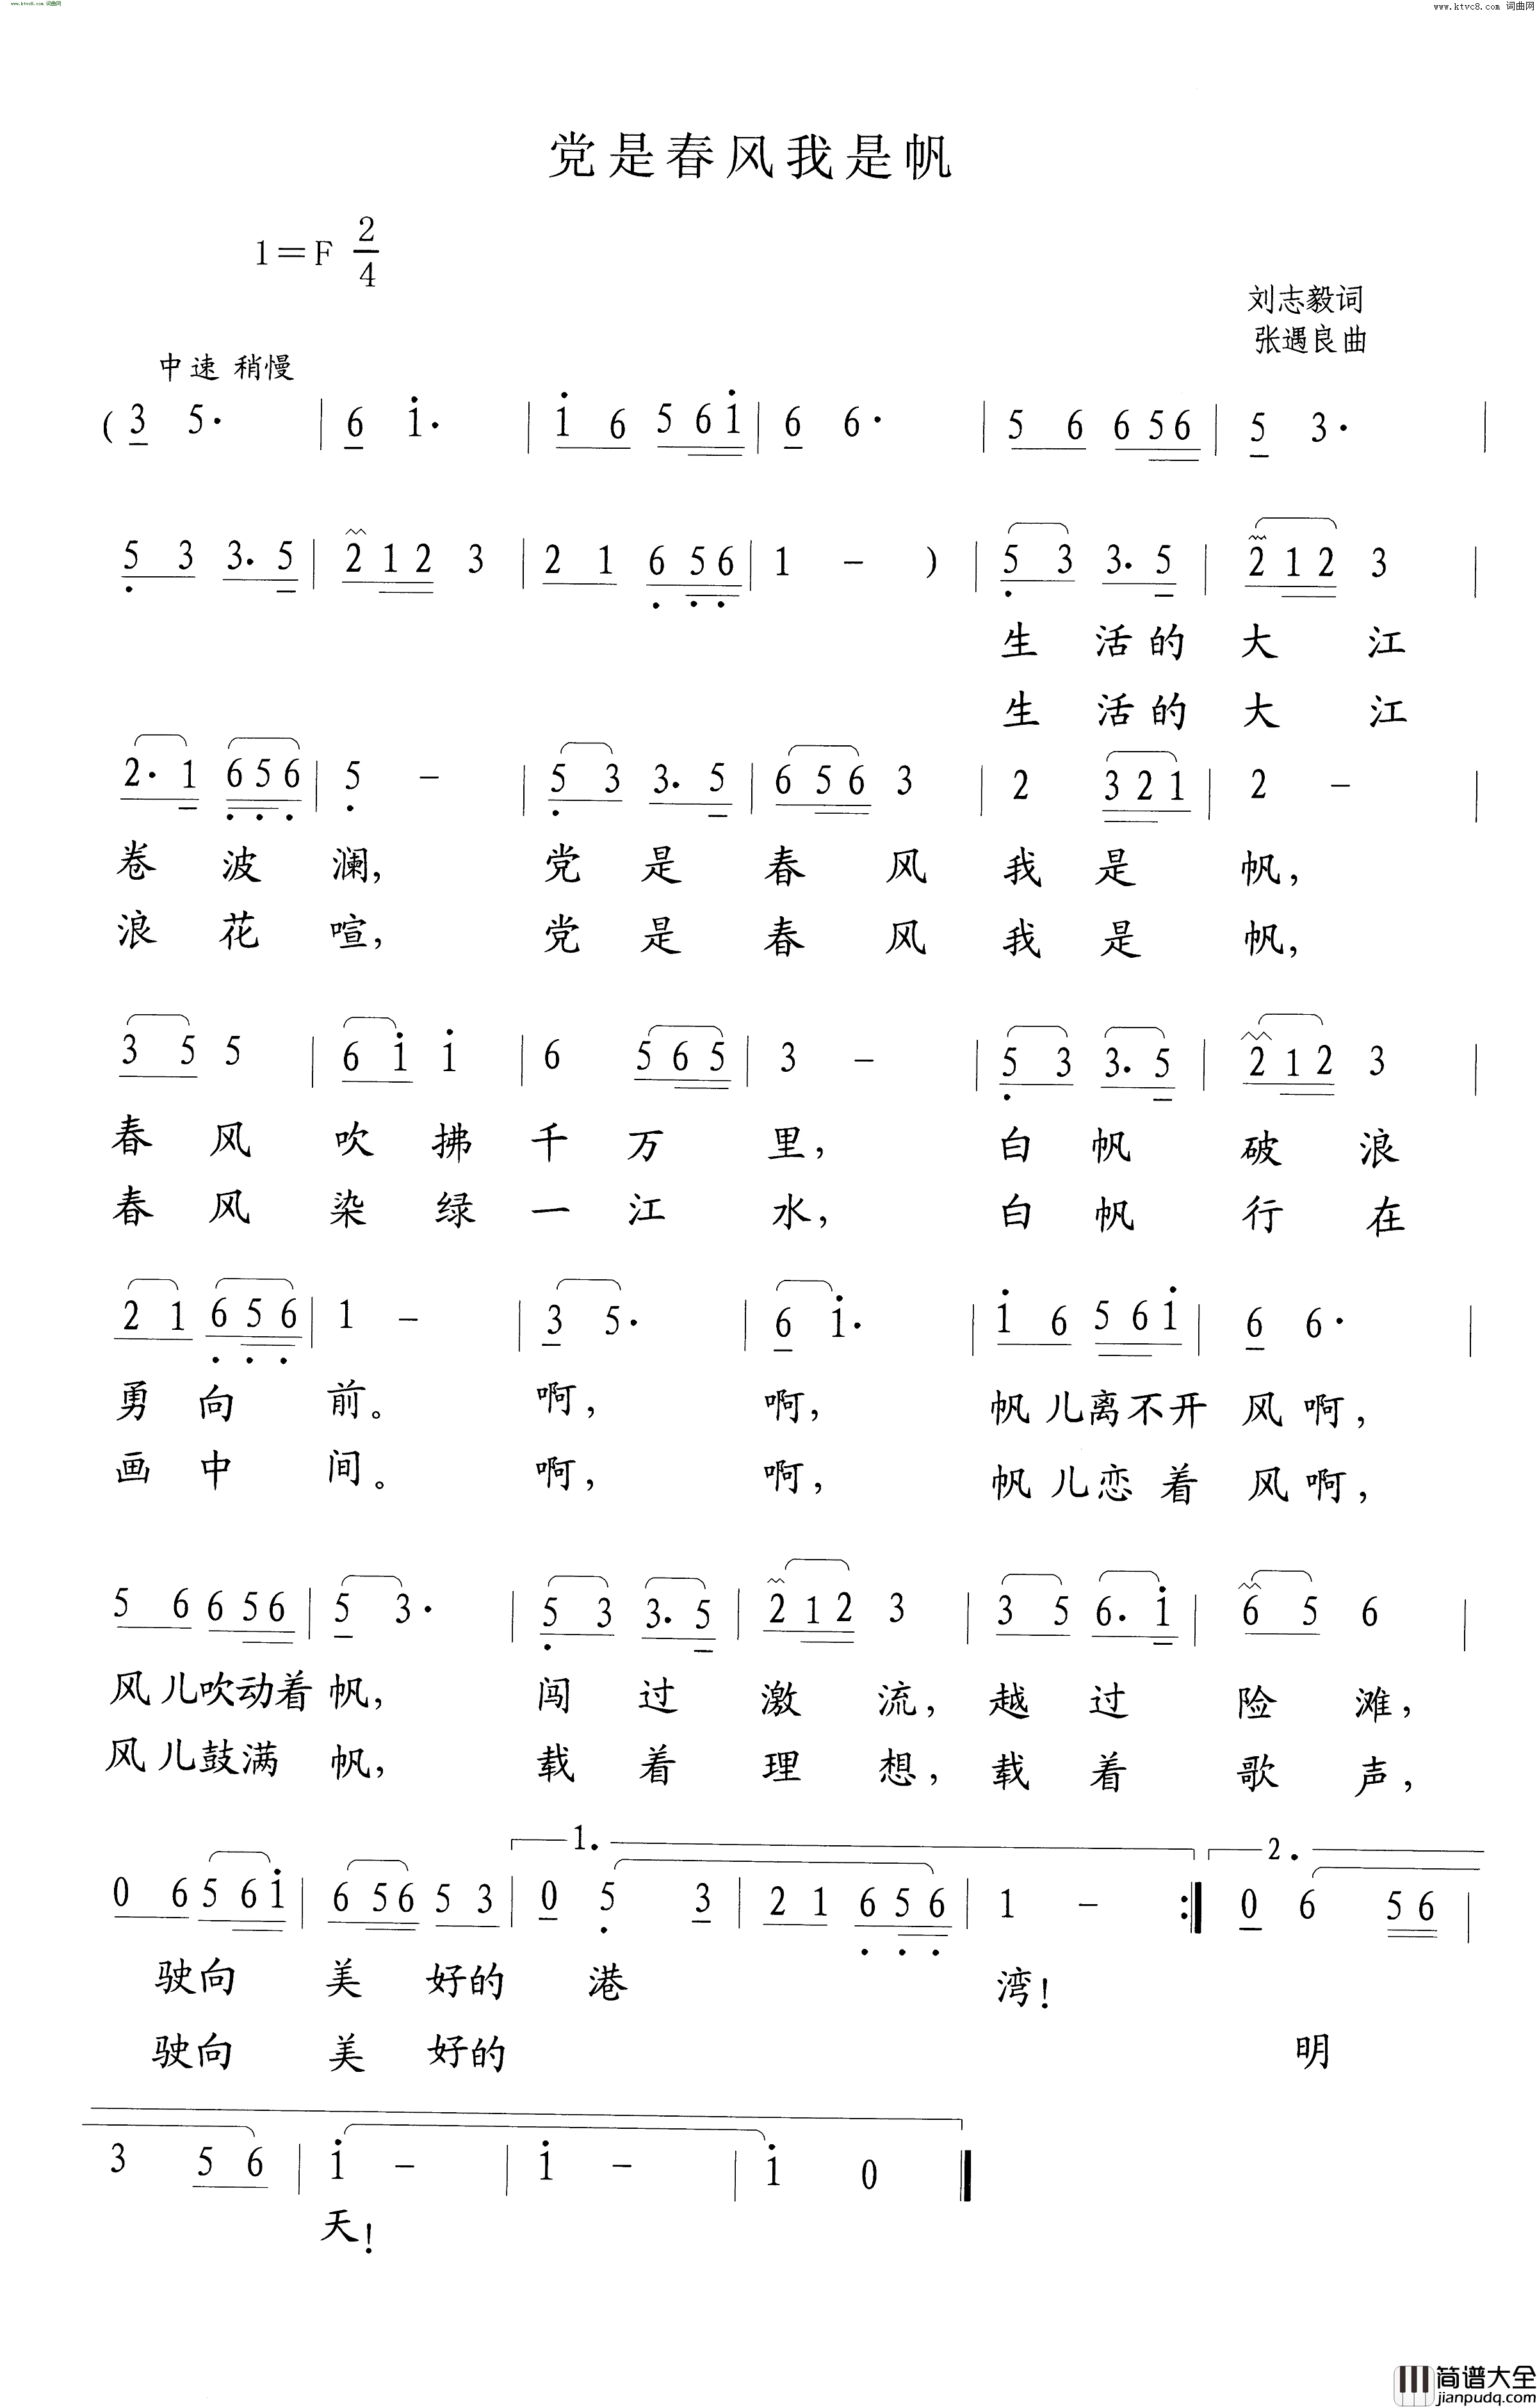 www.ktvc8.com 词曲网
www.ktvc8.com 词曲网
党是春风我是帆
1=F 2/4
刘志毅词
张遇良曲
中速 稍慢
( 3 5· | 6 i· | i 6 5 6 i | 6 6· | 5 6 6 5 6 | 5 3· |
5 3 3· 5 | 2 1 2 3 | 2 1 6 5 6 | 1 - ) | 5 3 3· 5 | 2 1 2 3 |
生 活 的 大 江
生 活 的 大 江
2· 1 6 5 6 | 5 - | 5 3 3· 5 | 6 5 6 3 | 2 3 2 1 | 2 - |
卷 波 澜, 党 是 春 风 我 是 帆,
浪 花 喧, 党 是 春 风 我 是 帆,
3 5 5 | 6 i i | 6 5 6 5 | 3 - | 5 3 3· 5 | 2 1 2 3 |
春 风 吹 拂 千 万 里, 白 帆 破 浪
春 风 染 绿 一 江 水, 白 帆 行 在
2 1 6 5 6 | 1 - | 3 5· | 6 i· | i 6 5 6 i | 6 6· |
勇 向 前。 啊, 啊, 帆 儿离不开 风 啊,
画 中 间。 啊, 啊, 帆 儿恋 着 风 啊,
5 6 6 5 6 | 5 3· | 5 3 3· 5 | 2 1 2 3 | 3 5 6· i | 6 5 6 |
风 儿吹动着 帆, 闯 过 激 流, 越 过 险 滩,
风 儿鼓满 帆, 载 着 理 想, 载 着 歌 声,
1. 2.
0 6 5 6 i | 6 5 6 5 3 | 0 5 3 | 2 1 6 5 6 | 1 - :| 0 6 5 6 |
驶向 美 好的 港 湾!
驶向 美 好的 明
3 5 6 | i - | i - | i 0 ‖
天!
简谱大全
jianpudq.com